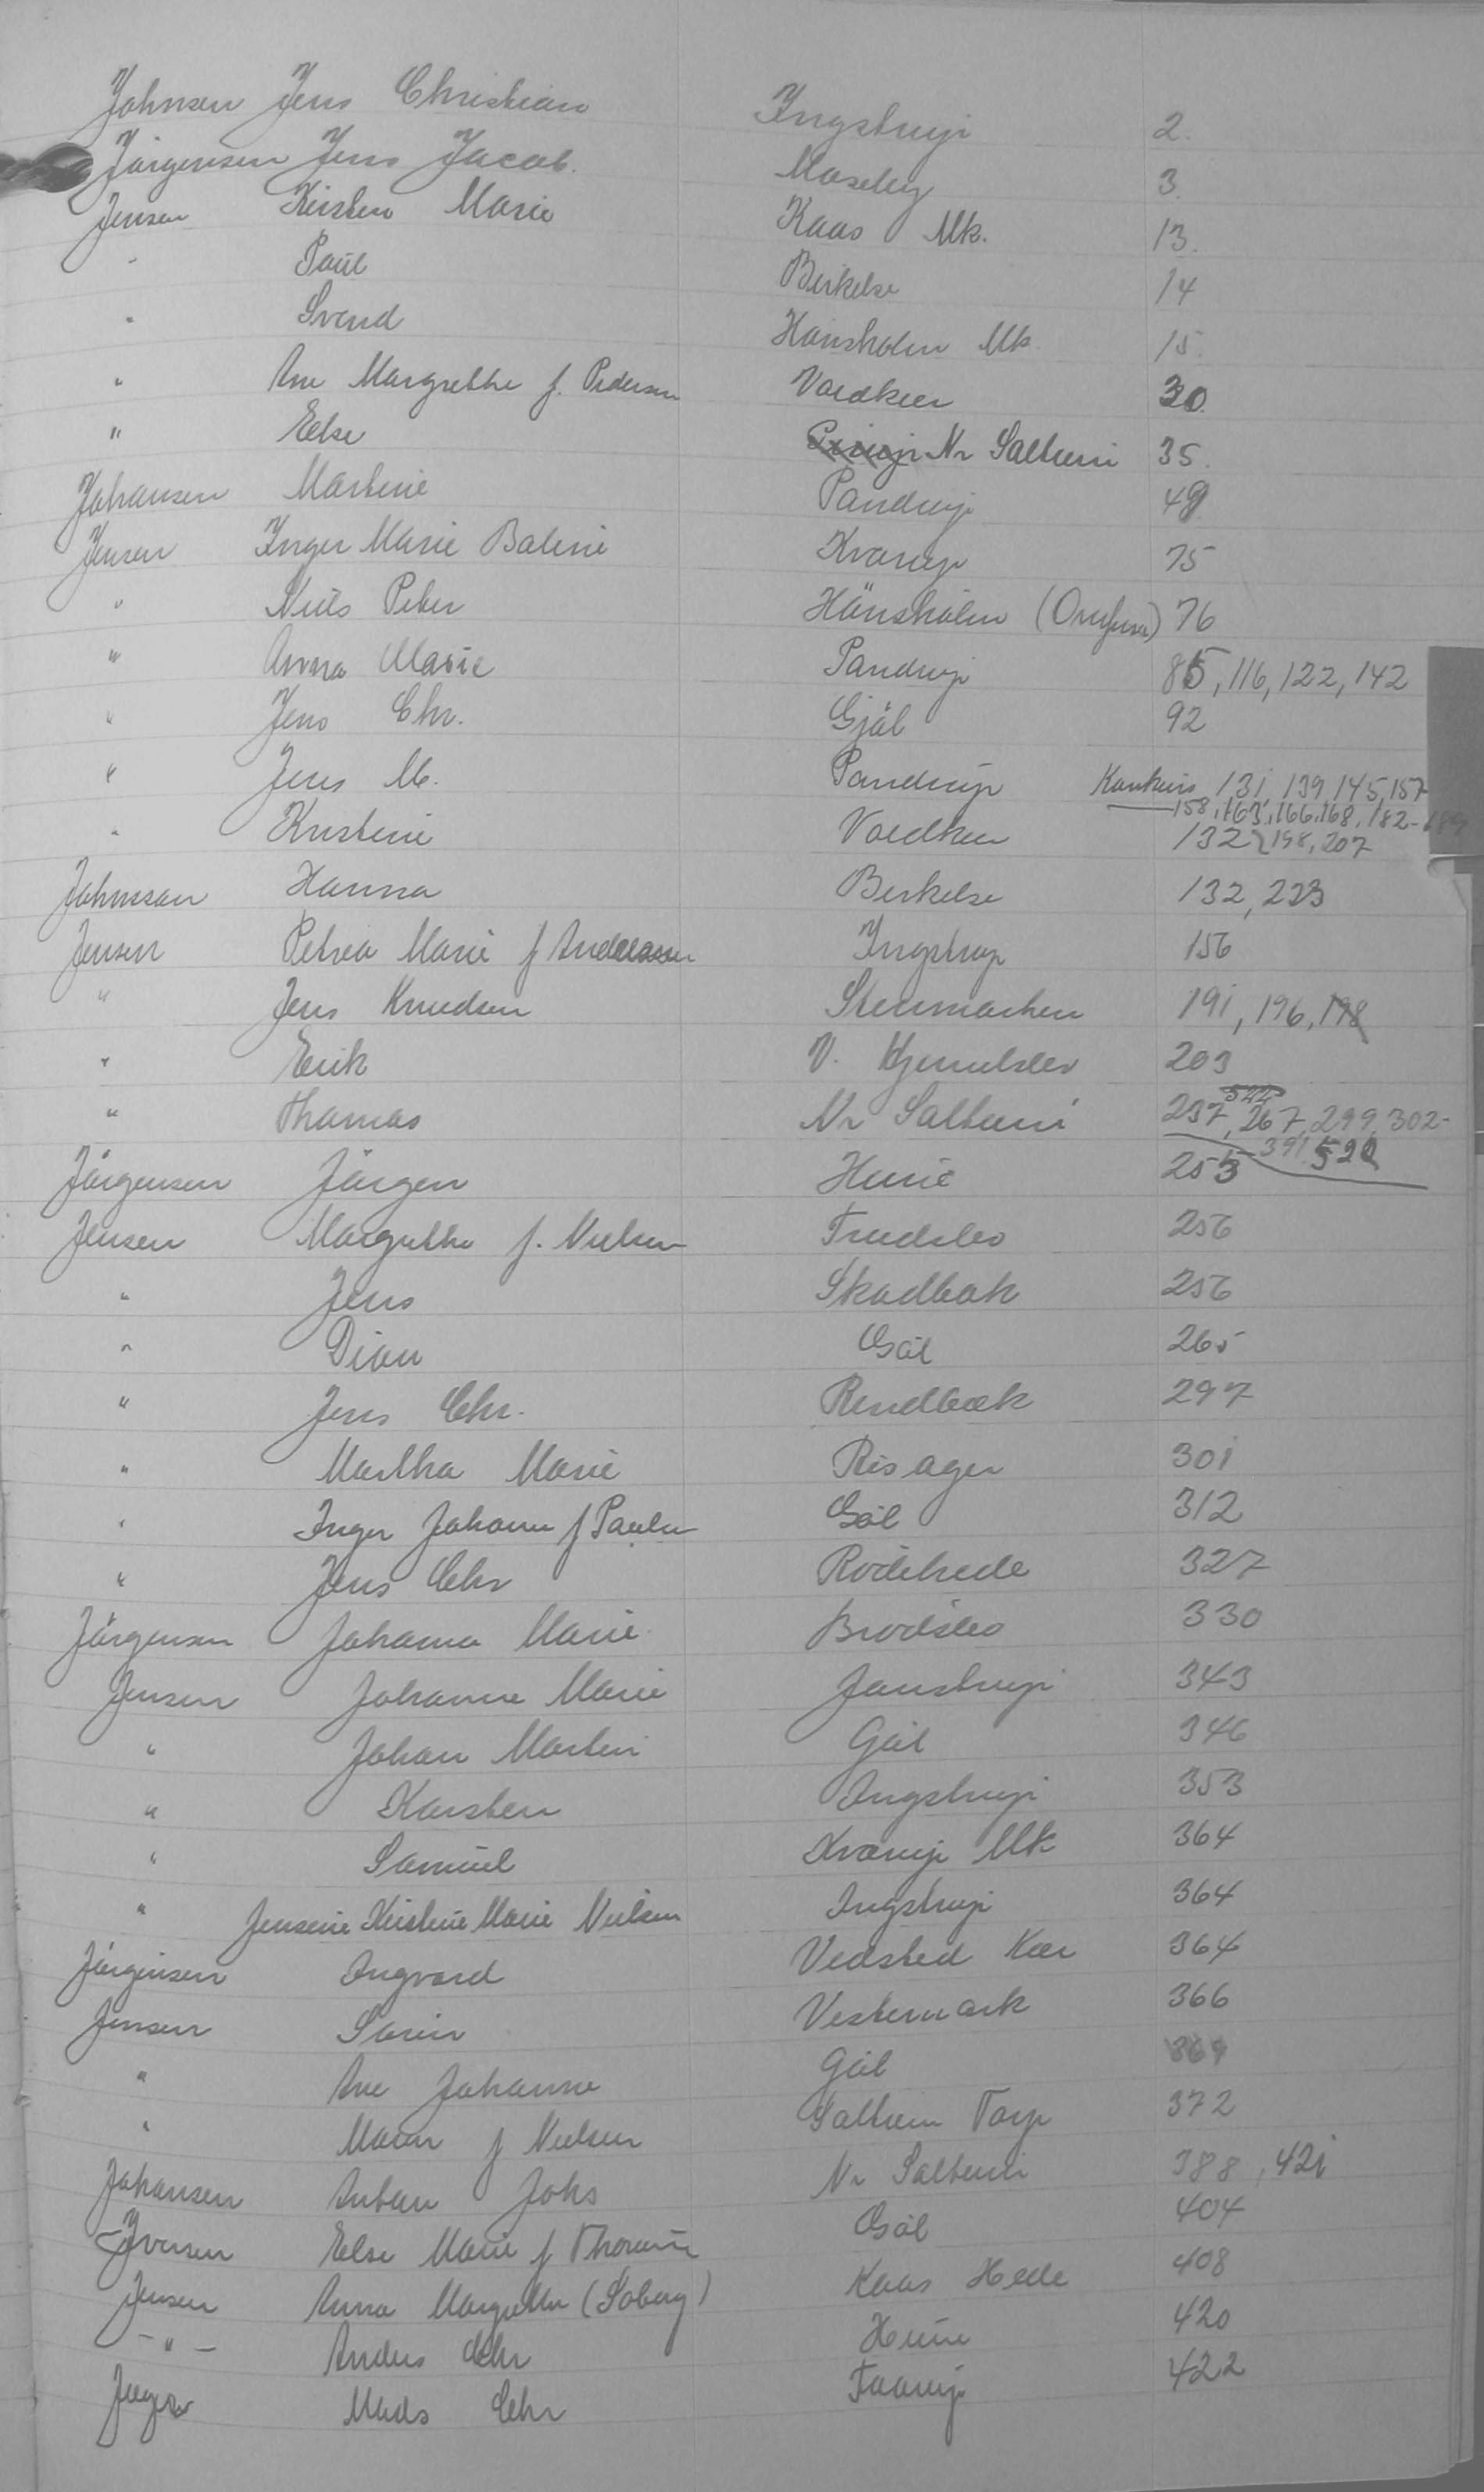 Johnsen Jens Christian Ingstrup 2.
Jörgensen Jens Jacob. Moseby 3.
Jensen Kirsten Marie Kaas Mk. 13.
" Paul Birkelse 14
" Svend Hansholm Mk 15.
" Ane Margrethe f. Pedersen Voldkær 30.
" Else Nr Saltum 35.
Johansen Martine Pandrup 49
Jensen Inger Marie Boline Kvorup 75
" Niels Peter Hansholm 76
" Anna Marie Pandrup 85, 116, 122, 142
" Jens Chr. Gjöl 92
" Jens M. Pandrup Konkurs 131, 139, 145, 157
158, 163, 166, 168, 182-189
" Kristine Voldkær 132 198, 207
Johnsson Hanna Birkelse 132, 223
Jensen Petrea Marie f Andersen Ingstrup 156
" Jens Knudsen Stenmarken 191, 196, 198
" Erik V. Hjermitslev 203
" Thomas Nr Saltum 237, 267, 299, 302-
544
391 520
Jörgensen Jörgen Hune 253
Jensen Margrethe f. Nielsen Trudslev 256
" Jens Skadbak 256
" Dion Göl 265
" Jens Chr. Rendbæk 297
" Martha Marie Risager 301
" Inger Johanne f Paulsen Göl 312
" Jens Chr Rödehede 327
Jörgensen Johanne Marie Brodslev 330
Jensen Johanne Marie Janstrup 343
" Johan Martin Göl 346
" Karsten Ingstrup 353
" Samuel Kvorup Mk 364
" Jensine Kristine Marie Nielsen Ingstrup 364
Jörgensen Ingvard Vedsted Kær 364
Jensen Sören Vestermark 366
" Ane Johanne Göl 369
" Maren f Nielsen Saltum Torp 372
Johansen Anton Johs Nr Saltum 388, 421
Iversen Else Marie f Thomsen Göl 404
Jensen Anna Margrethe (Söborg) Kaas Hede 408
- " - Anders Chr Hune 420
Mads Chr Faarup 422